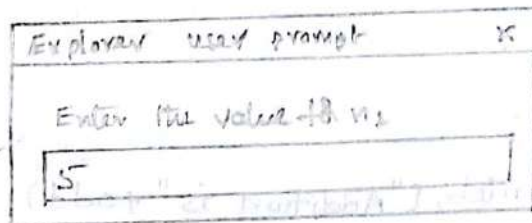 Explorer user prompt x
Enter the value of n1
5